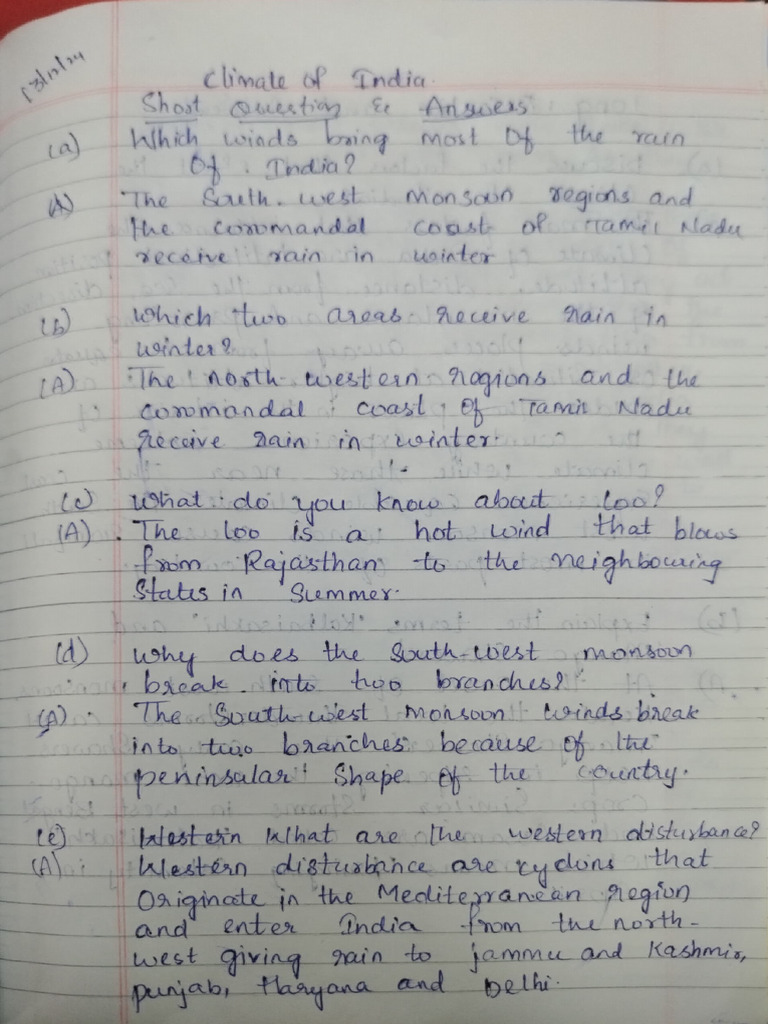 13/12/24
Climate of India.
Short Question & Answers
(a) Which winds bring most Of the rain
Of India?
(A) The South-west monsoon regions and
the coromandal coast of Tamil Nadu
receive rain in winter
(b) which two areas receive rain in
winter?
(A) The north-western ragions and the
coromandal coast of Tamil Nadu
receive rain in winter.
(c) what do you know about loo?
(A). The loo is a hot wind that blows
from Rajasthan to the neighbouring
States in Summer.
(d) why does the South-west monsoon
break into two branches?
(A). The South-west monsoon winds break
into two branches because of the
peninsular shape of the country.
(e) Western What are the western disturbance?
(A). Western disturbance are cyclons that
Originate in the Mediterranean region
and enter India from the north-
west giving rain to jammu and Kashmir,
punjab, Haryana and Delhi.